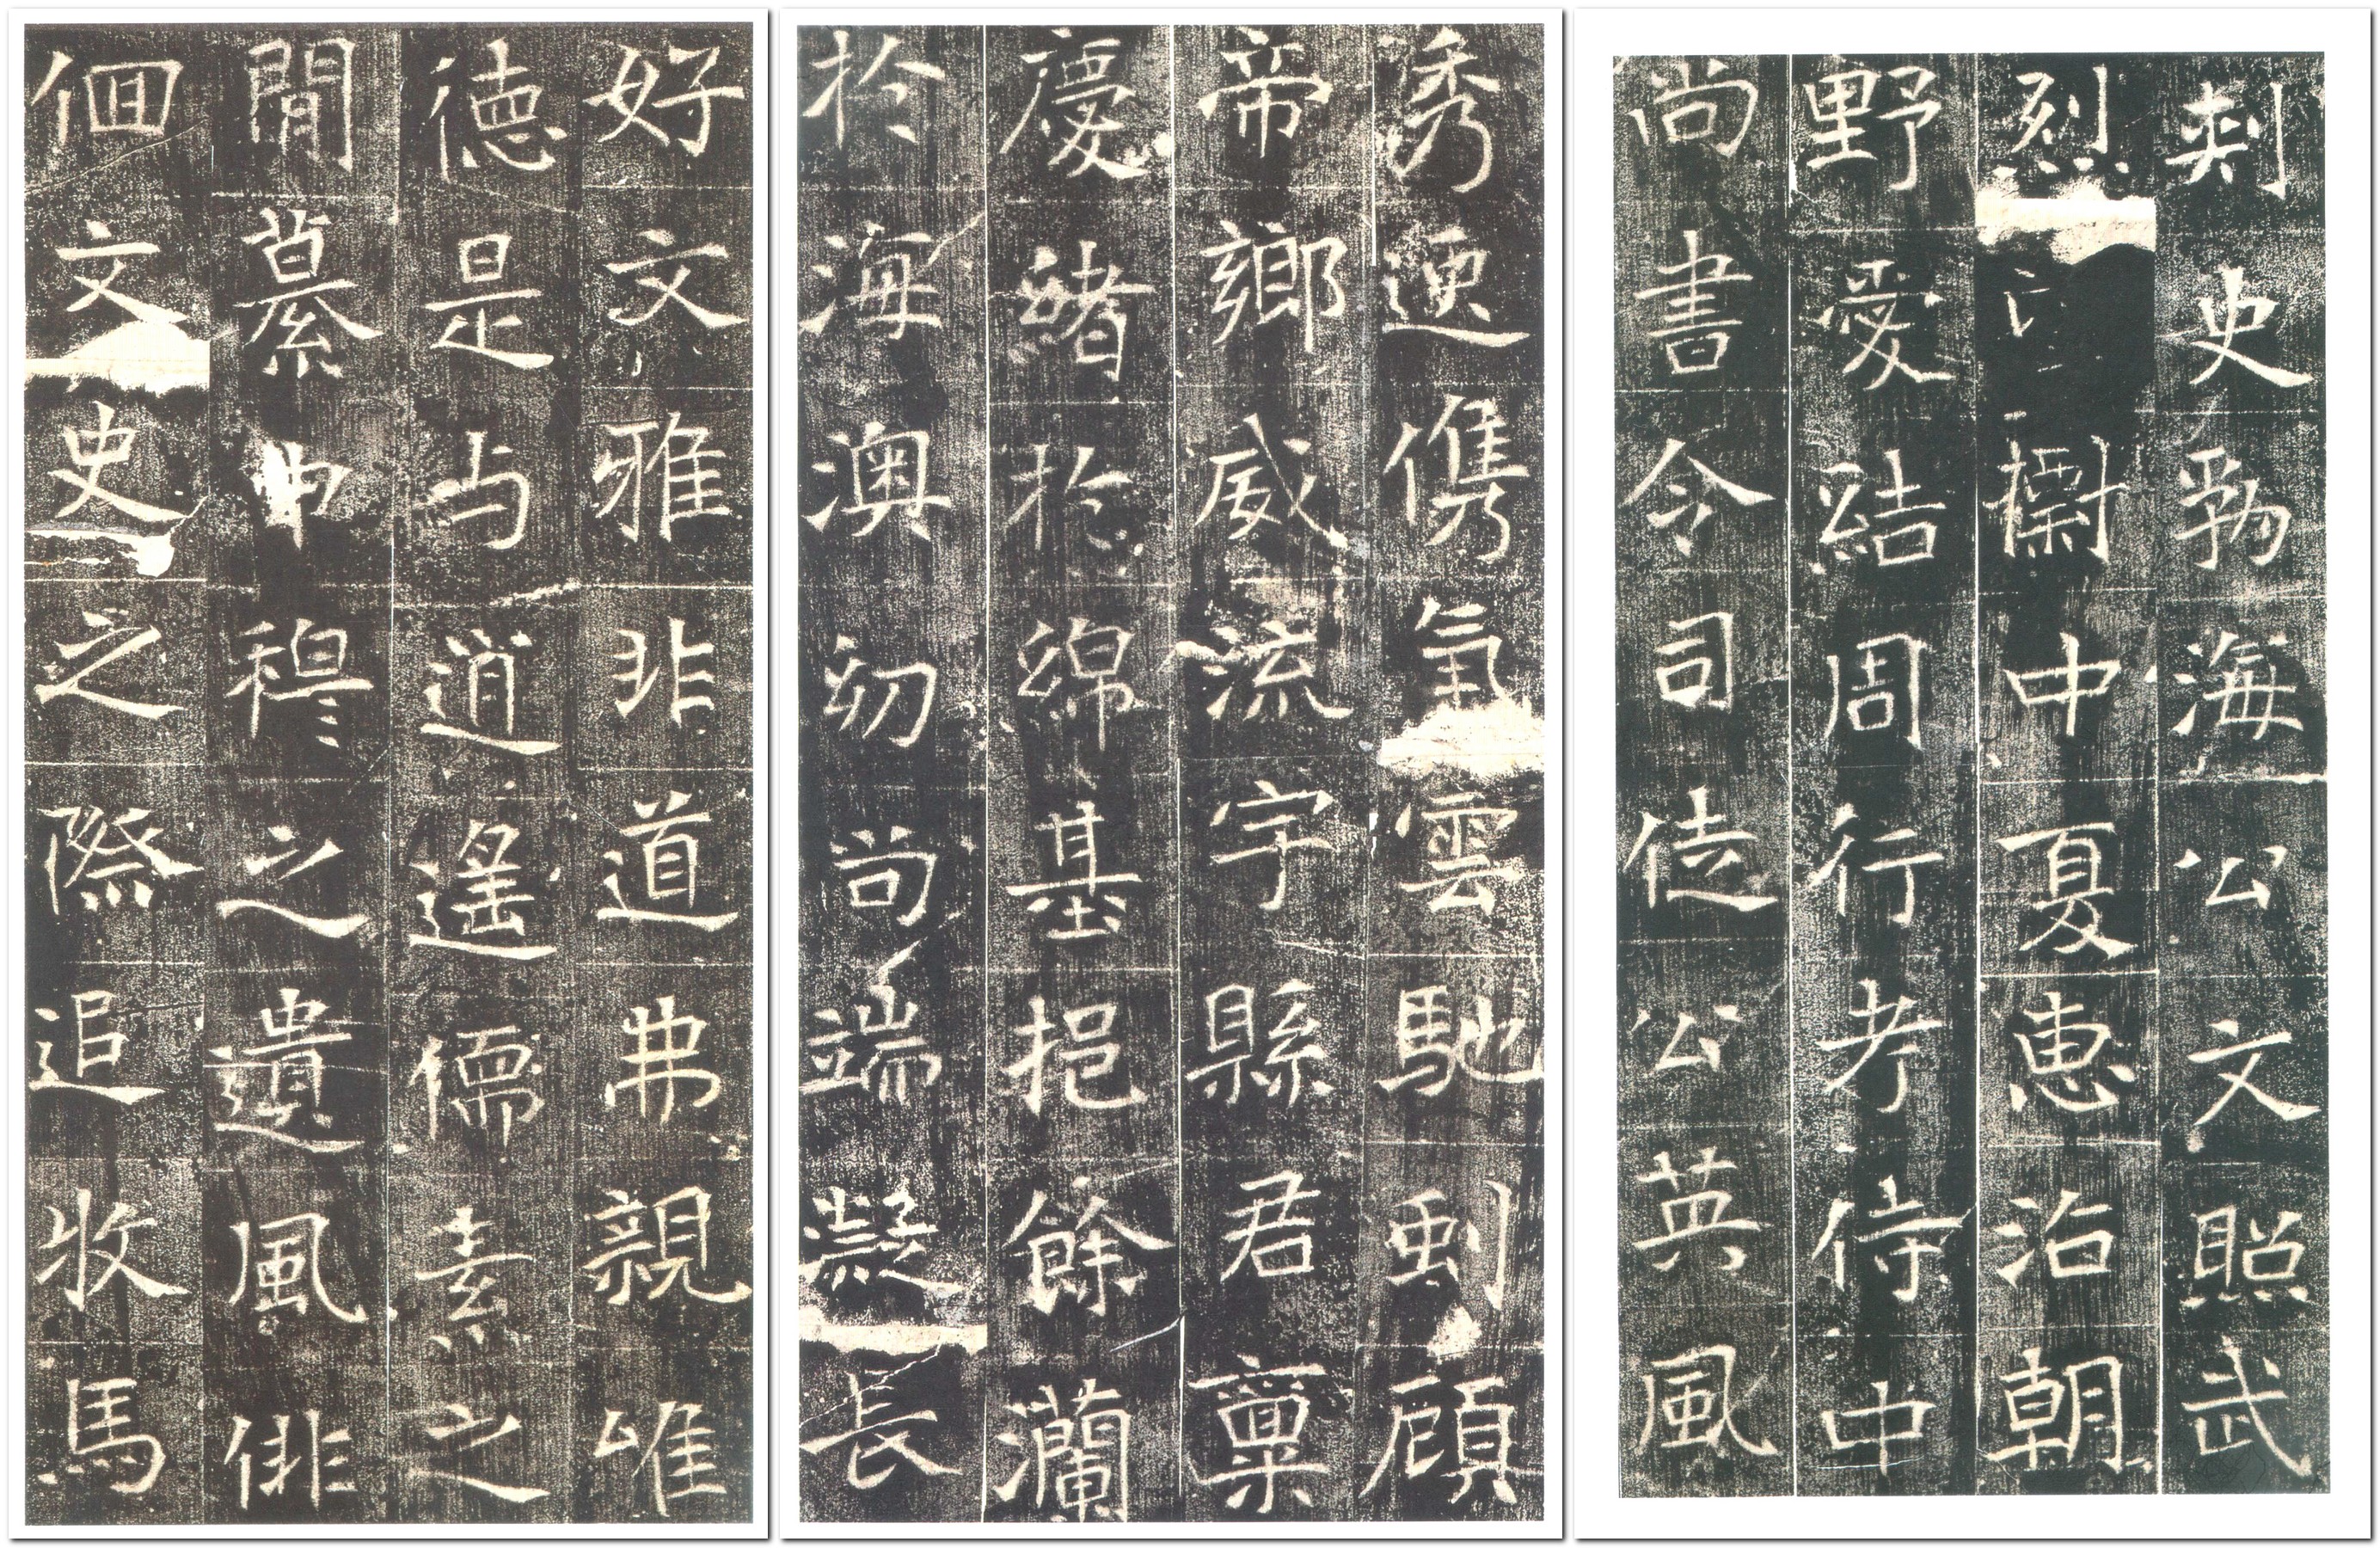 刾史勃海公文照武
烈檦中夏惠洽朝
野愛結周行考侍中
尚書令司徒公英風
秀逈儁氣雲馳顧
帝鄉威流宇縣君稟
慶緒於綿基挹餘瀾
於海澳幼尚端凝長
好文雅非道弗親唯
德是与逍遙儒素之
間慕申穆之遺風徘
徊文史之際追收馬